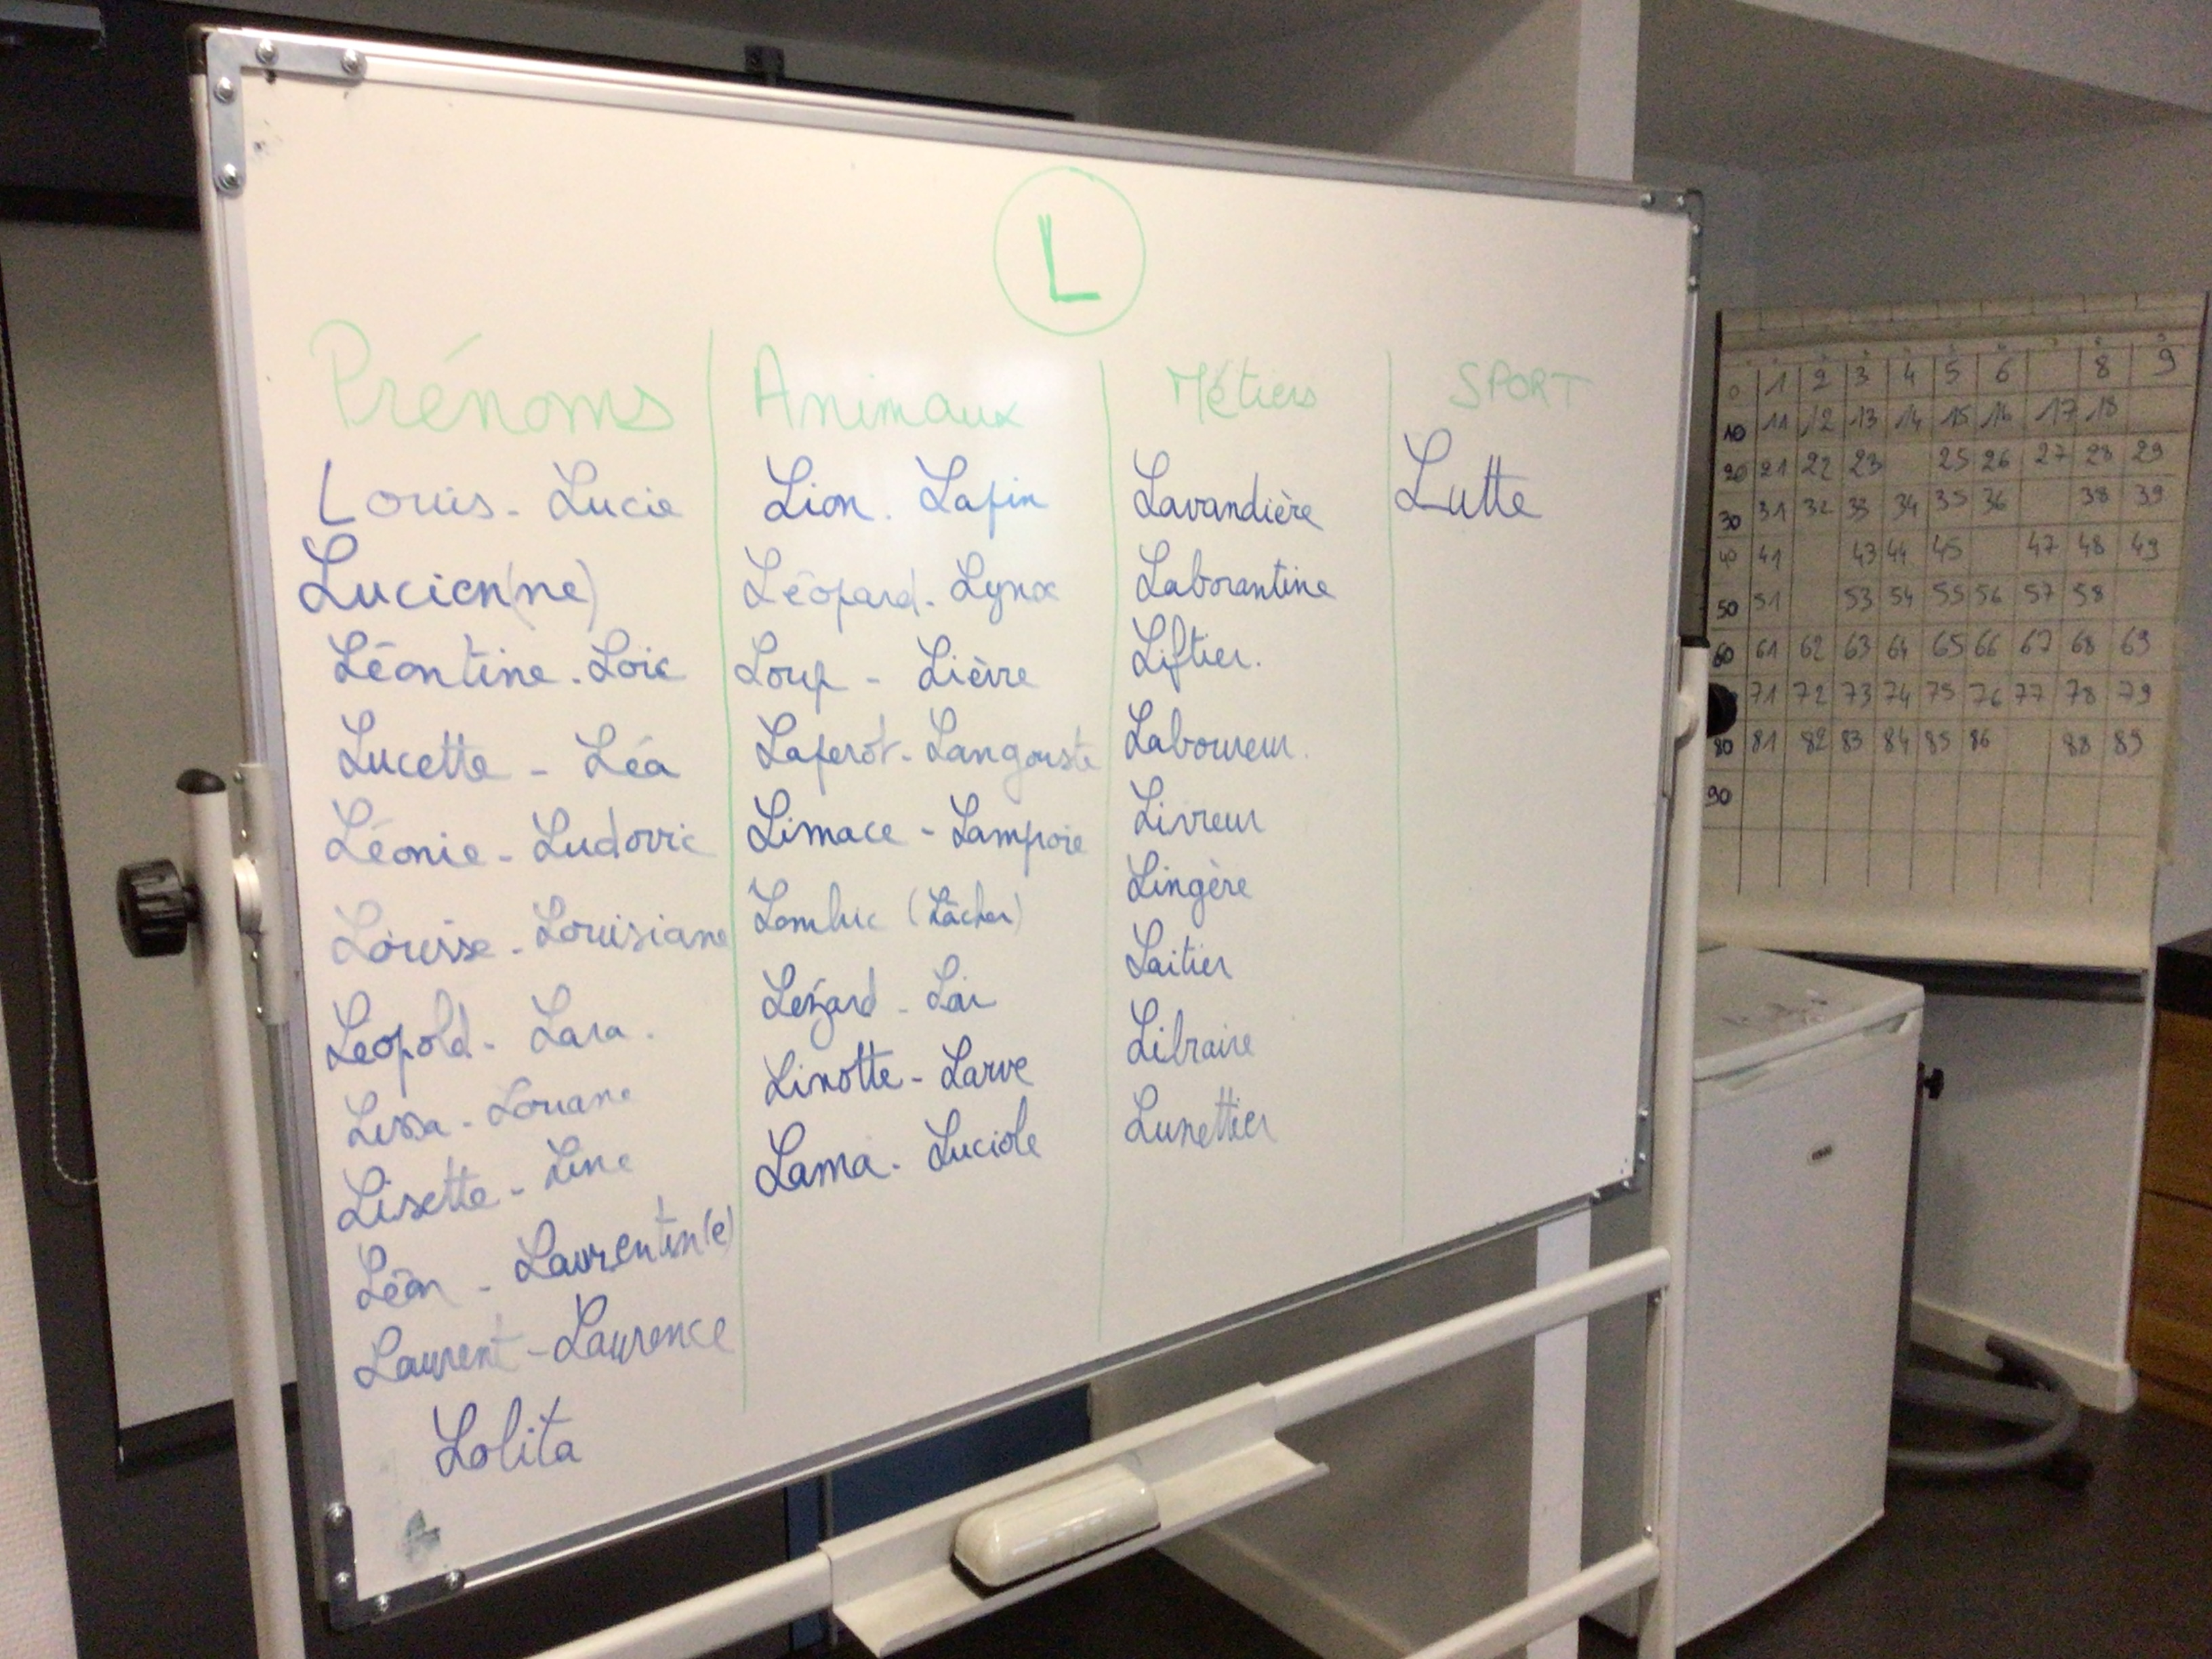 L
Prénoms
Louis - Lucie
Lucien(ne)
Léontine - Loic
Lucette - Léa
Léonie - Ludovic
Louise - Louisiane
Léopold - Lara.
Lissa - Louane
Lisette - Line
Léon - Laurentin(e)
Laurent - Laurence
Lolita
Animaux
Lion. Lapin
Léopard - Lynx
Loup - Lièvre
Laperot - Langouste
Limace - Lamproie
Lombric (Lâcher)
Lézard - Loir
Linotte - Larve
Lama - Luciole
Métiers
Lavandière
Laborantine
Liftier.
Laboureur.
Livreur
Lingère
Laitier
Libraire
Lunettier
SPORT
Lutte
0 1 2 3 4 5 6 8 9
10 11 12 13 14 15 16 17 18
20 21 22 23 25 26 27 28 29
30 31 32 33 34 35 36 38 39
40 41 43 44 45 47 48 49
50 51 53 54 55 56 57 58
60 61 62 63 64 65 66 67 68 69
71 72 73 74 75 76 77 78 79
80 81 82 83 84 85 86 88 89
90